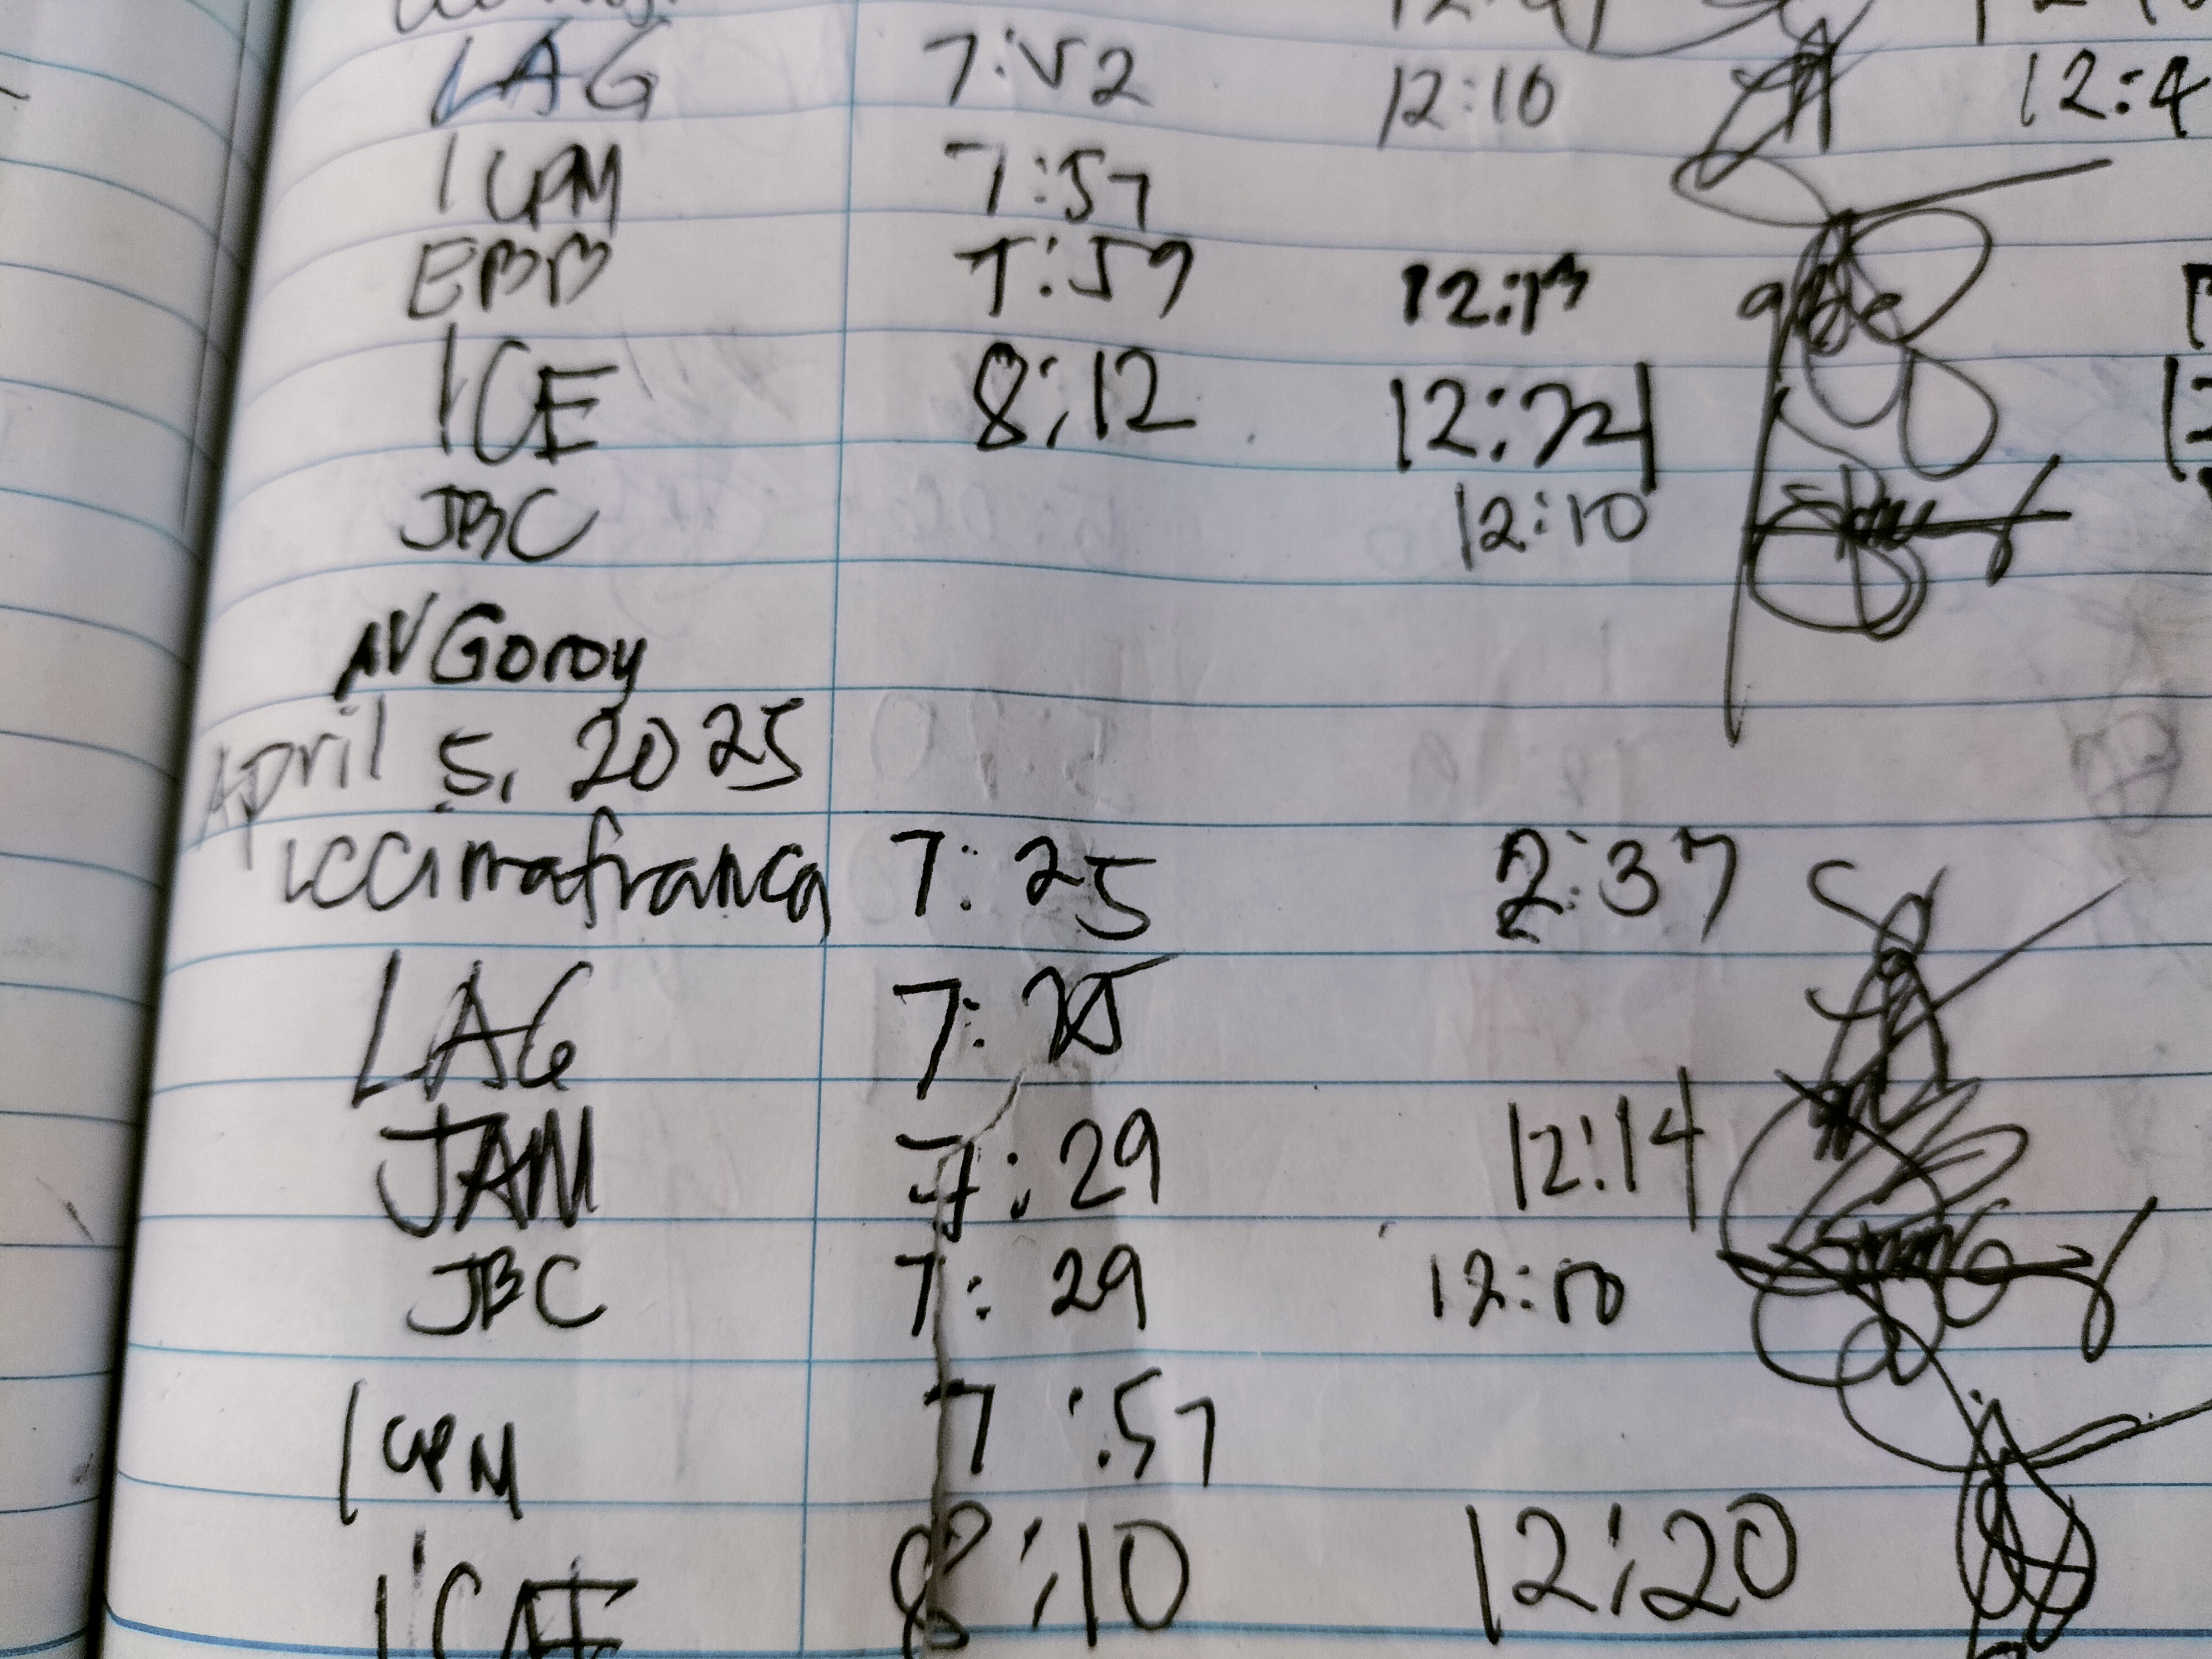 LAG 7:52 12:10 12:4
ICPM 7:57
EBB 7:59 12:13
ICE 8:12 12:24
JBC 12:10
AV Goroy
April 5, 2025
LCCimafranca 7:25 2:37
LAG 7:25
JAM 7:29 12:14
JBC 7:29 12:10
ICPM 7:57
8:10 12:20